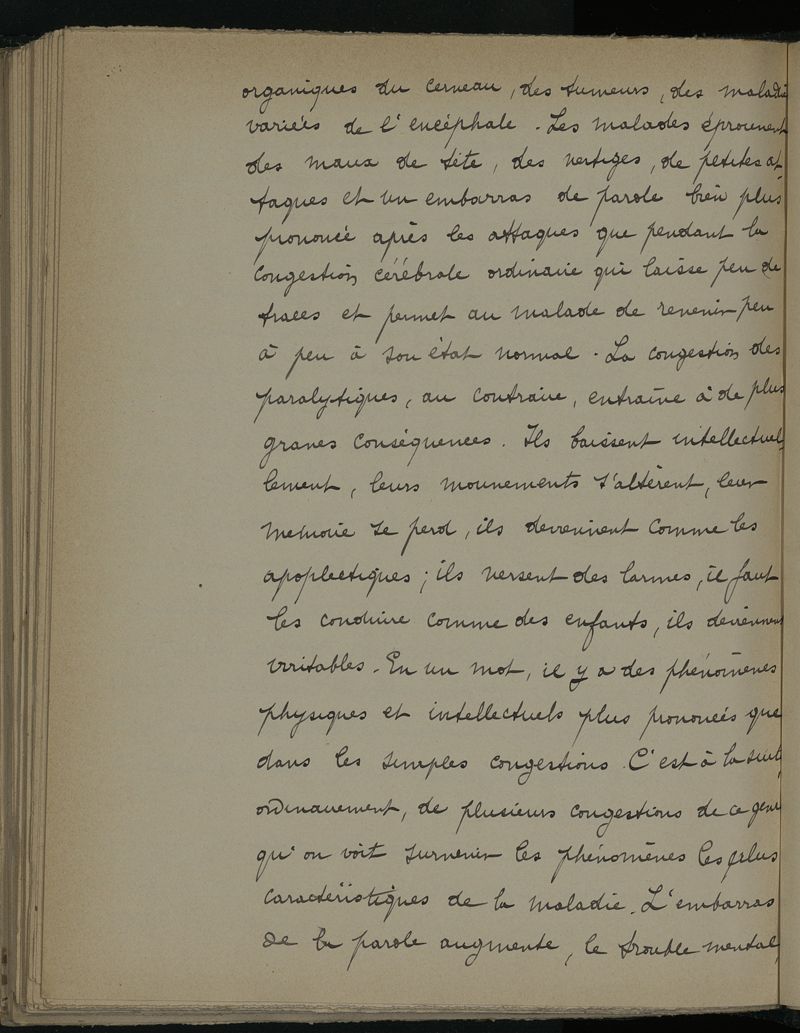 organiques du cerveau, des tumeurs, des maladies
variées de l'encéphale. Les malades éprouvent
des maux de tête, des vertiges, de petites at-
taques et un embarras de parole bien plus
prononcé après les attaques que pendant la
congestion cérébrale ordinaire qui laisse peu de
traces et permet au malade de revenir peu
à peu à son état normal. La congestion des
paralytiques, au contraire, entraîne à de plus
graves conséquences. Ils baissent intellectuel-
lement, leurs mouvements s'altèrent, leur
mémoire se perd, ils deviennent comme les
apoplectiques; ils versent des larmes, il faut
les conduire comme des enfants, ils deviennent
irritables. En un mot, il y a des phénomènes
physiques et intellectuels plus prononcés que
dans les simples congestions. C'est à la suite,
ordinairement, de plusieurs congestions de ce genre
qu'on voit survenir les phénomènes les plus
caractéristiques de la maladie. L'embarras
de la parole augmente, le trouble mental,